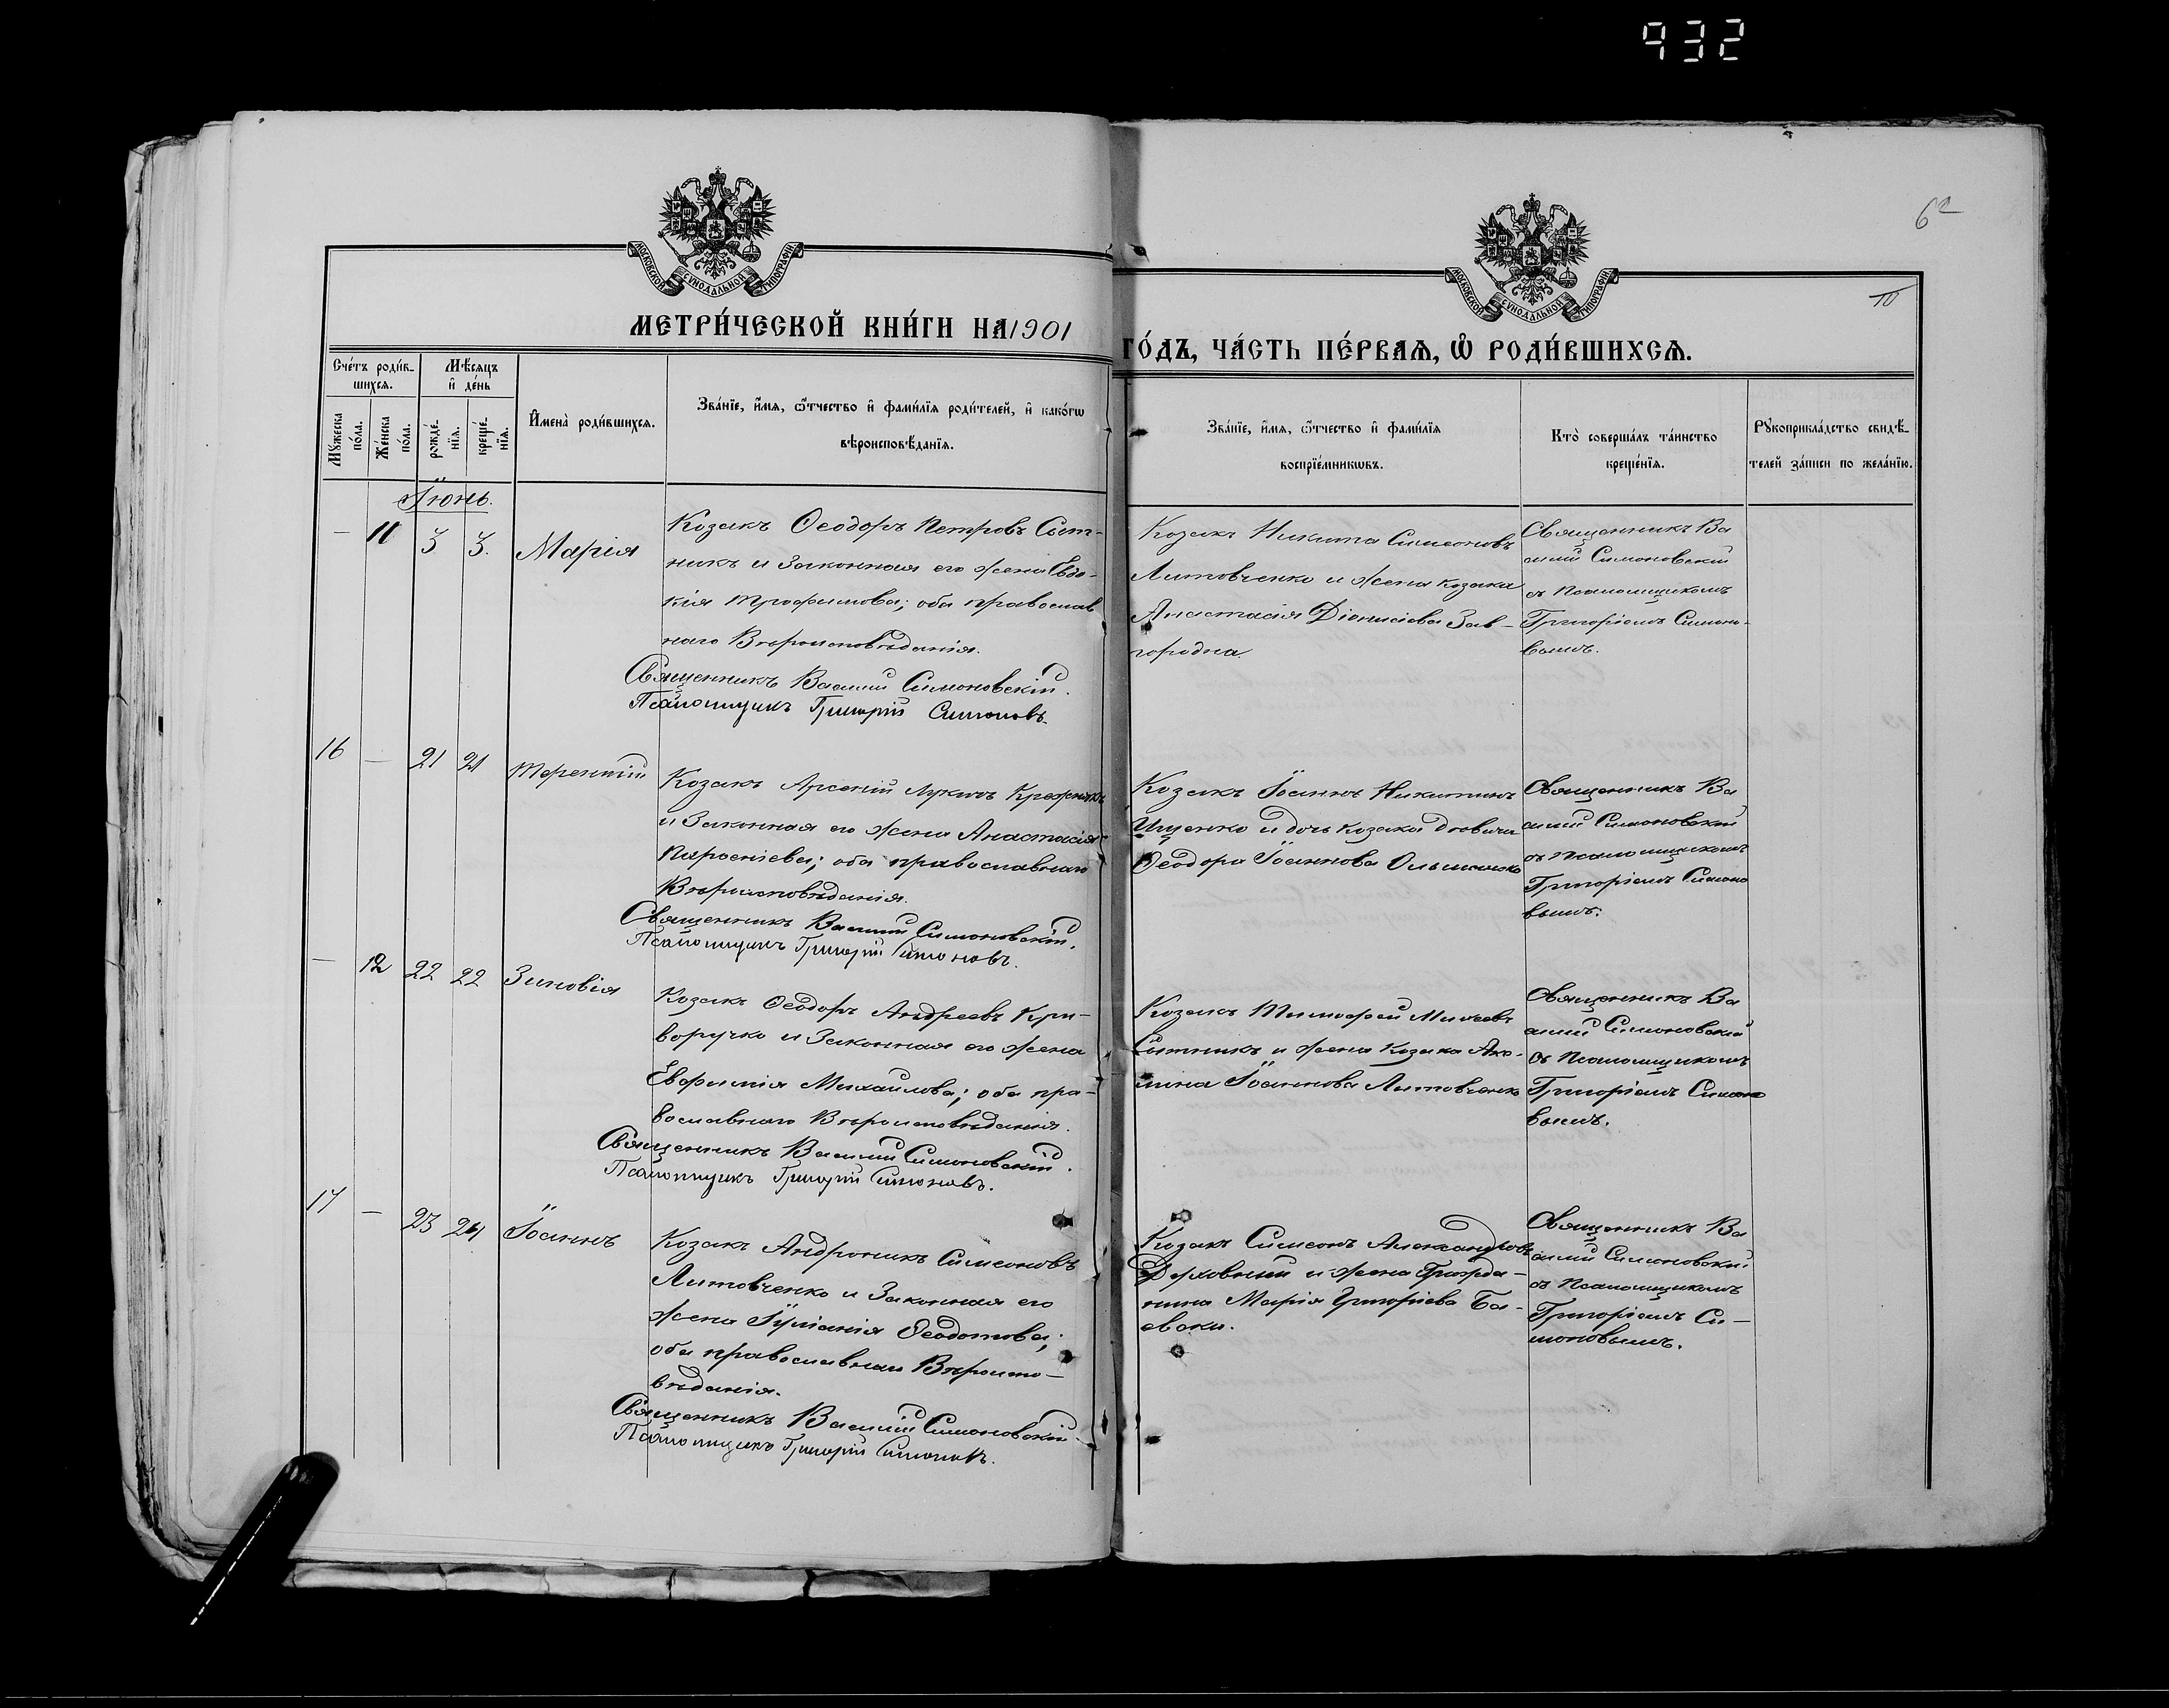 932
6
МОСКОВСКОЙ СѴНОДАЛЬНОЙ ТИПОГРАФІИ
МОСКОВСКОЙ СѴНОДАЛЬНОЙ ТИПОГРАФІИ
10
МЕТРИ́ЧЕСКОЙ КНИ́ГИ НА 1901
ГО́ДЪ, ЧА́СТЬ ПЕ́РВАЯ, Ѽ РОДИ́ВШИХСЯ.
Сче́тъ роди́в-
шихся.
Мѣ́сяцъ
и҆ де́нь
Мꙋжеска
по́ла.
Же́нска
по́ла.
рожде́-
нїя.
креще́-
нїя.
И҆мена̀ роди́вшихся.
Зва́нїе, и҆́мя, ѻ҆́тчество и҆ фами́лїя роди́телей, и҆ како́гѡ
вѣроисповѣ́данїя.
Зва́нїе, и҆́мя, ѻ҆́тчество и҆ фами́лїя
воспрїе́мникѡвъ.
Кто̀ соверша́лъ та́инство
креще́нїя.
Рꙋкоприкла́дство свидѣ́-
телей за́писи по жела́нїю.
Іюнь.
— 11 3 3. Марія
Козакъ Ѳеодоръ Петровъ Сыт-
никъ и законная его жена Евдо-
кія Трофимова; оба православ
наго Вѣроисповѣданія.
Священникъ Василій Симоновскій.
Псаломщикъ Григорій Симоновъ.
Козакъ Никита Симеоновъ
Литовченко и жена козака
Анастасія Діонисіева Зав-
городна.
Священникъ Ва
силій Симоновскій
съ Псаломщикомъ
Григоріемъ Симоно-
вымъ.
16 — 21 21 Терентій
Козакъ Арсеній Лукинъ
и Законная его жена Анастасія
Парѳеніева; оба православнаго
Вѣроисповѣданія.
Священникъ Василій Симоновскій.
Псаломщикъ Григорій Симоновъ.
Козакъ Іоаннъ Никитинъ
Ищенко и дочь козака дѣвица
Ѳеодора Іоаннова
Священникъ Ва
силій Симоновскій
съ Псаломщикомъ
Григоріемъ Симоно
вымъ.
— 12 22 22 Зиновія
Козакъ Ѳеодоръ Андреевъ Кри-
воручко и Законная его жена
Евфимія Михайлова; оба пра-
вославнаго Вѣроисповѣданія.
Священникъ Василій Симоновскій.
Псаломщикъ Григорій Симоновъ.
Козакъ Тимофей Михеевъ
Сытникъ и жена козака Аку-
лина Іоаннова Литовченко
Священникъ Ва
силій Симоновскій
съ Псаломщикомъ
Григоріемъ Симоно
вымъ.
17 — 23 24 Іоаннъ
Козакъ Андроникъ Симеоновъ
Литовченко и Законная его
жена Іуліанія Ѳеодотова;
оба православнаго Вѣроиспо-
вѣданія.
Священникъ Василій Симоновскій.
Псаломщикъ Григорій Симоновъ.
Козакъ Симеонъ Александровъ
и жена Гражда-
нина Марія Григоріева Ба-
евска.
Священникъ Ва
силій Симоновскій
съ Псаломщикомъ
Григоріемъ Си-
моновымъ.